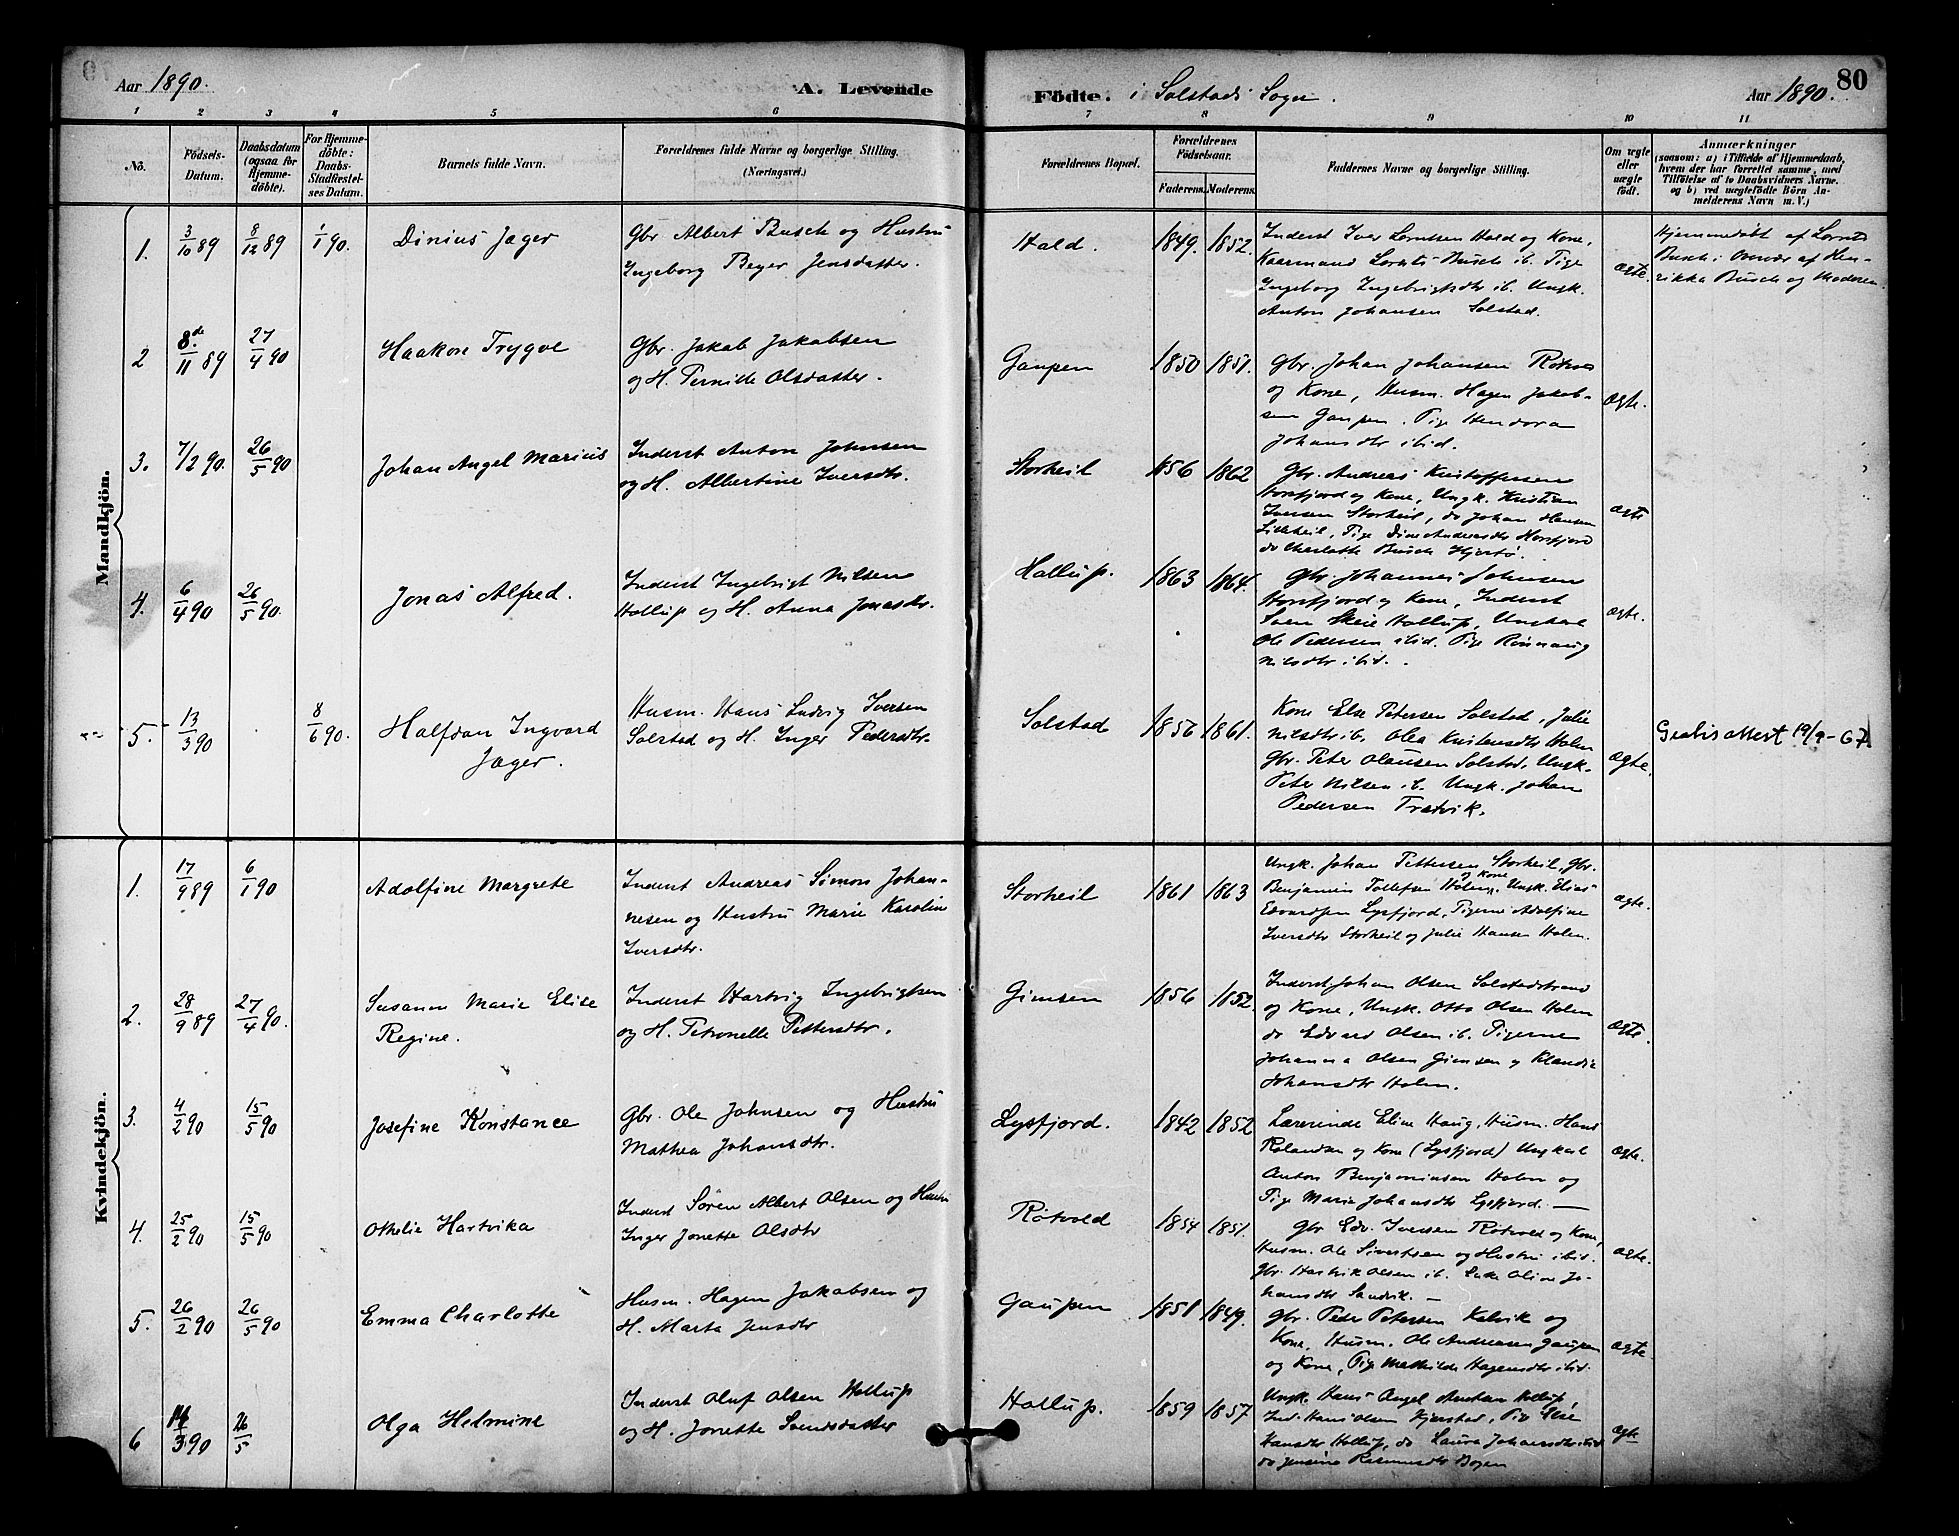 Aar 1890.
A. Levende
Födte. i Solstads Sogn.
Aar 1890.
80
1 2 3 4 5 6 7 8 9 10 11
No.
Födsels-
Datum.
Daabsdatum
(ogsaa for
Hjemme-
döbte).
For Hjemme-
döbte:
Daabs-
Stadfæstel-
ses Datum.
Barnets fulde Navn.
Forældrenes fulde Navne og borgerlige Stilling.
(Næringsvei.)
Forældrenes Bopæl.
Forældrenes
Födselsaar.
Faderens. Moderens.
Faddernes Navne og borgerlige Stilling.
Om ægte
eller
uægte
født.
Anmærkninger
(saasom: a) i Tilfælde af Hjemmedaab,
hvem der har forrettet samme, med
Tilföielse af to Daabsvidners Navne,
og b) ved uægtefödte Börn An-
melderens Navn m. V.)
Mandkjön.
1. 3/10 89 8/12 89 1/1 90. Dinius Jager
Gbr Albert Busch og Hustru
Ingeborg Beyer Jensdatter.
Hald. 1849. 1852.
Inderst Iver Lorntsen Hald og Kone,
Kaarmand Lornts Busch ib. Pige
Ingeborg Ingebrigtsdtr ib. Ungk.
Anton Johansen Solstad.
ægte.
Hjemmedøbt af Lornts
Busch i Overvær af Hen-
rikka Busch og Moderen.
2 8de/11 89 27/4 90 Haakon Trygve
Gbr. Jakob Jakobsen
og H. Pernille Olsdatter.
Gaupen 1850 1851.
Gbr. Johan Johansen Rötvold
og Kone, Husm. Hagen Jakob-
sen Gaupen. Pige Hendora
Johansdtr ibid.
Ægte.
3. 7/2 90. 26/5 90 Johan Angel Marius
Inderst Anton Johnsen
og H. Albertine Iversdtr.
Storheil 1856 1862
Gbr. Andreas Kristoffersen
Horsfjord og Kone, Ungk. Kristian
Iversen Storheil, do Johan Hansen
Lilleheil, Pige Dina Andreasdtr Horsfjord
do Charlotte Busch
ægte
4. 6/4 90 26/5 90. Jonas Alfred.
Inderst Ingebrigt Nilsen
Hollup og H. Anna Jonasdtr.
Hollup. 1863 1864.
Gbr. Johannes Johnsen
Horsfjord og Kone, Inderst
Hollup, Ungkarl
Ole Pedersen ibid. Pige Rönnaug
Nilsdtr ibid.
ægte.
5. 13/3 90 8/6 90. Halfdan Ingvard
Jager.
Husm. Hans Ludvig Iversen
Solstad og H. Inger Pedersdtr.
Solstad 1856 1861.
Kone Else Petersen Solstad, Julie
Nilsdtr ib. Olea Kristensdtr Holm
Gbr. Peter Olausen Solstad, Ungk.
Peter Nilsen ib. Ungk. Johan
Pedersen Trætvik.
ægte.
Gratis attest 19/9-67
Kvindekjön.
1. 17/9 89 6/1 90 Adolfine Margrete
Inderst Andreas Simon Johan-
nesen og Hustru Marie Karolin
Iversdtr.
Storheil 1861 1863
Ungk. Johan Pettersen Storheil, Gbr.
og Kone
Benjamin Tollefsen Holm, Ungk. Elias
Edvardsen Lysfjord, Pigerne Adolfine
Iversdtr Storheil og Julie Hansen Holm.
ægte.
2. 28/9 89 27/4 90. Susanna Marie Elise
Regine.
Inderst Hartvig Ingebrigtsen
og H. Petronelle Pettersdtr.
Gimsen 1856 1852.
Inderst Johan Olsen Solstadstrand
og Kone, Ungk. Otto Olsen Holm
do Edvard Olsen ib. Pigerne
Johanna Olsen Gimsen og Klaudia
Johansdtr Holm.
ægte.
3. 4/2 90 15/5 90 Josefine Konstance
Gbr. Ole Johnsen og Hustru
Mathea Johansdtr.
Lysfjord. 1842 1852
Lærerinde Eline Haug, Husm. Hans
Rolandsen og Kone (Lysfjord) Ungkarl
Anton Benjaminsen Holm og
Pige Marie Johansdtr Lysfjord. —
ægte.
4. 25/2 90 15/5 90 Othelie Hartvika
Inderst Sören Albert Olsen og Hustru
Inger Jonette Olsdtr
Rötvold 1854 1851.
Gbr Edv. Iversen Rötvold og Kone,
Husm. Ole Sivertsen og Hustru ibid.
Gbr. Hartvik Olsen ib. Enke Oline Jo-
hansdtr Sandvik. —
ægte.
5. 26/2 90 26/5 90 Emma Charlotte
Husm. Hagen Jakobsen og
H. Marta Jensdtr
Gaupen 1851 1849.
Gbr. Peder Petersen Kalvik og
Kone, Husm. Ole Andreasen Gaupen
og Kone, Pige Mathilde Hagensdtr ibid.
ægte.
6 14/3 90 26/5 Olga Helmine
Inderst Oluf Olsen Hollup
og H. Jonette Svendsdatter
Hollup. 1859 1857.
Ungk. Hans Angel Hollup,
Ind. Hans Olsen Kjerstad, Pige Else
Hansdtr Hollup, do Laura Johansdtr ibid
do Jensine Rasmusdtr Bogen
ægte